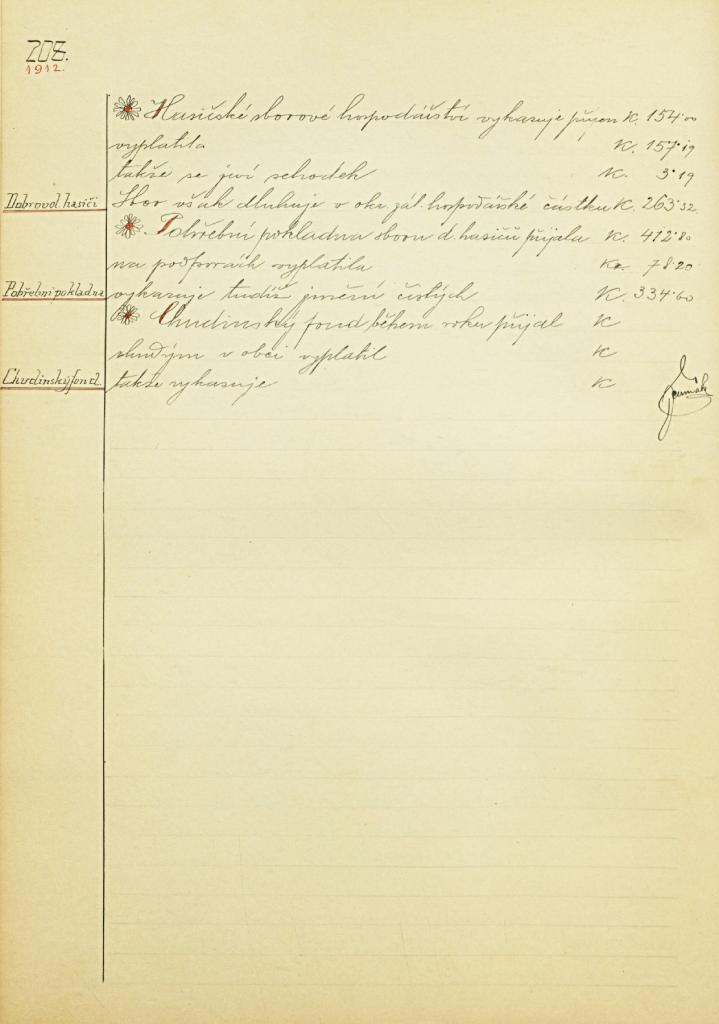 208.
1912.
Hasičské sborové hospodářství vykazuje příjem K. 154·00
vyplatila K. 157·19
takže se jeví schodek K. 3·19
Dobrovol. hasiči
Sbor však dluhuje v okr. zál. hospodářské částku K. 263·32.
Pohřební pokladna sboru d. hasičů přijala K. 412·80
na podporách vyplatila K. 78·20
Pohřební pokladna
vykazuje tudíž jmění čistých K. 334·60
Chudinský fond během roku přijal K
chudým v obci vyplatil K
Chudinský fond.
takže vykazuje K